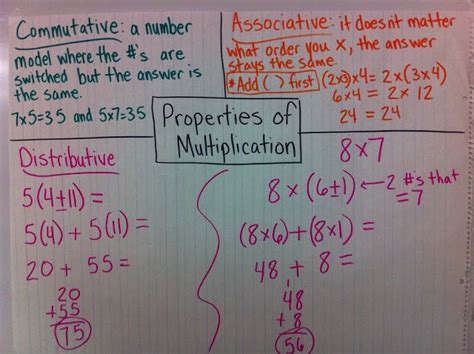 Commutative: a number
model where the #'s are
switched but the answer is
the same.
7x5=35 and 5x7=35
Associative: it doesn't matter
what order you x, the answer
stays the same.
*Add ( ) first (2x3)x4 = 2x(3x4)
6x4 = 2x 12
24 = 24
Properties of
Multiplication
Distributive
5(4+11) =
5(4) + 5(11) =
20 + 55 =
20
+55
75
8x7
8 x (6+1) ← 2 #'s that
=7
(8x6)+(8x1) =
48 + 8 =
48
+ 8
56